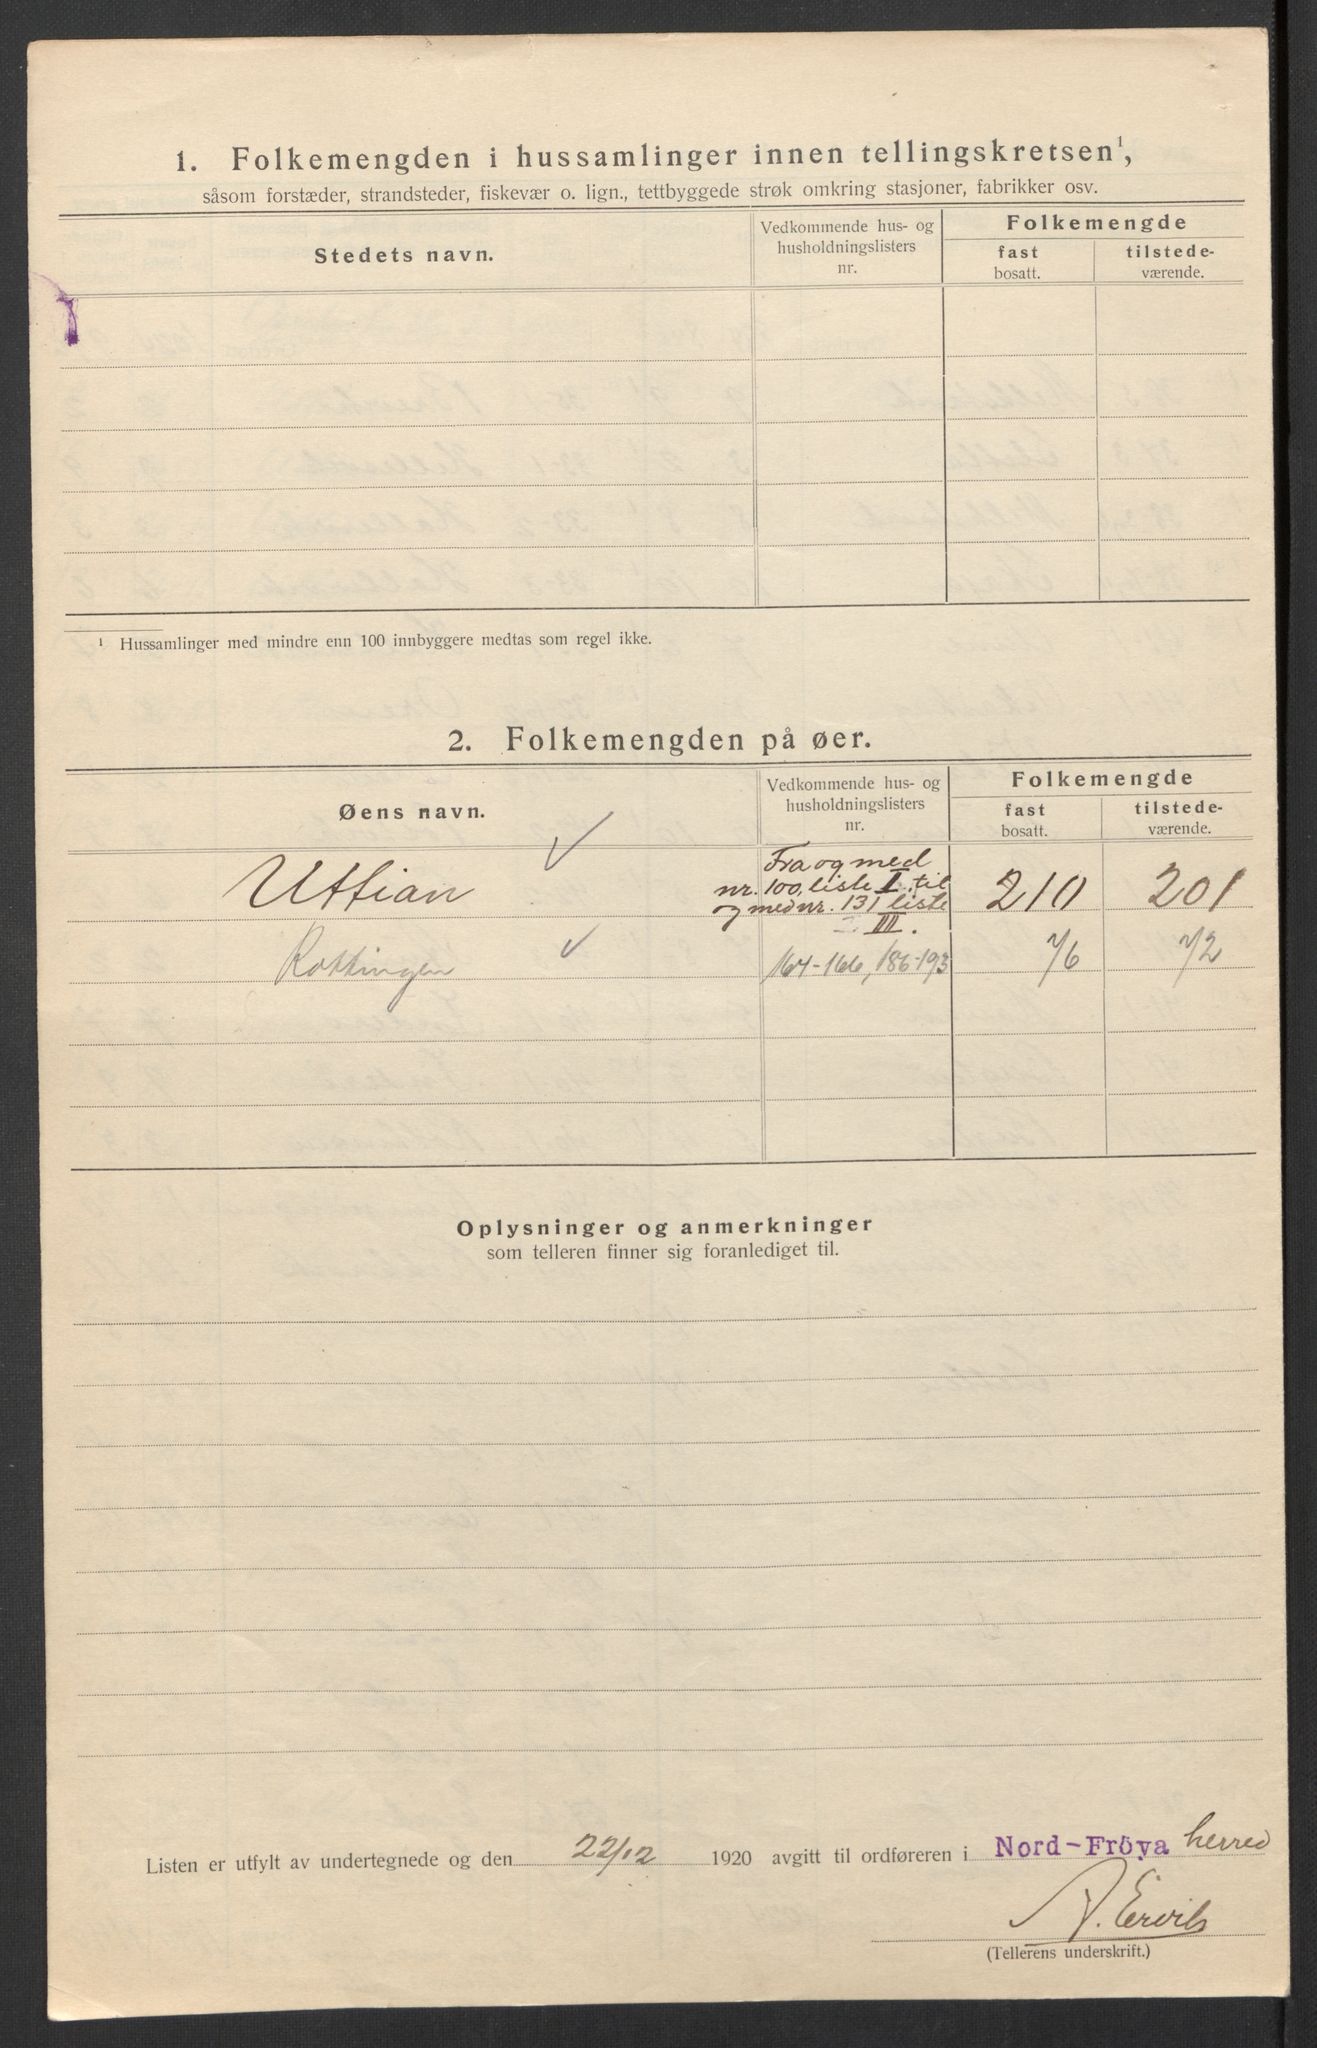 1. Folkemengden i hussamlinger innen tellingskretsen¹,
såsom forstæder, strandsteder, fiskevær o. lign., tettbyggede strøk omkring stasjoner, fabrikker osv.
Stedets navn.
Vedkommende hus- og
husholdningslisters
nr.
Folkemengde
fast
bosatt.
tilstede-
værende.
¹ Hussamlinger med mindre enn 100 innbyggere medtas som regel ikke.
2. Folkemengden på øer.
Øens navn.
Vedkommende hus- og
husholdningslisters
nr.
Folkemengde
fast
bosatt.
tilstede-
værende.
Uttian
Fra og med
nr. 100, liste I til
og med nr. 131 liste
III.
210
201
Rottingen
164-166, 186-193
76
72
Oplysninger og anmerkninger
som telleren finner sig foranlediget til.
Listen er utfylt av undertegnede og den 22/12 1920 avgitt til ordføreren i Nord-Fröya herred
(Tellerens underskrift.)